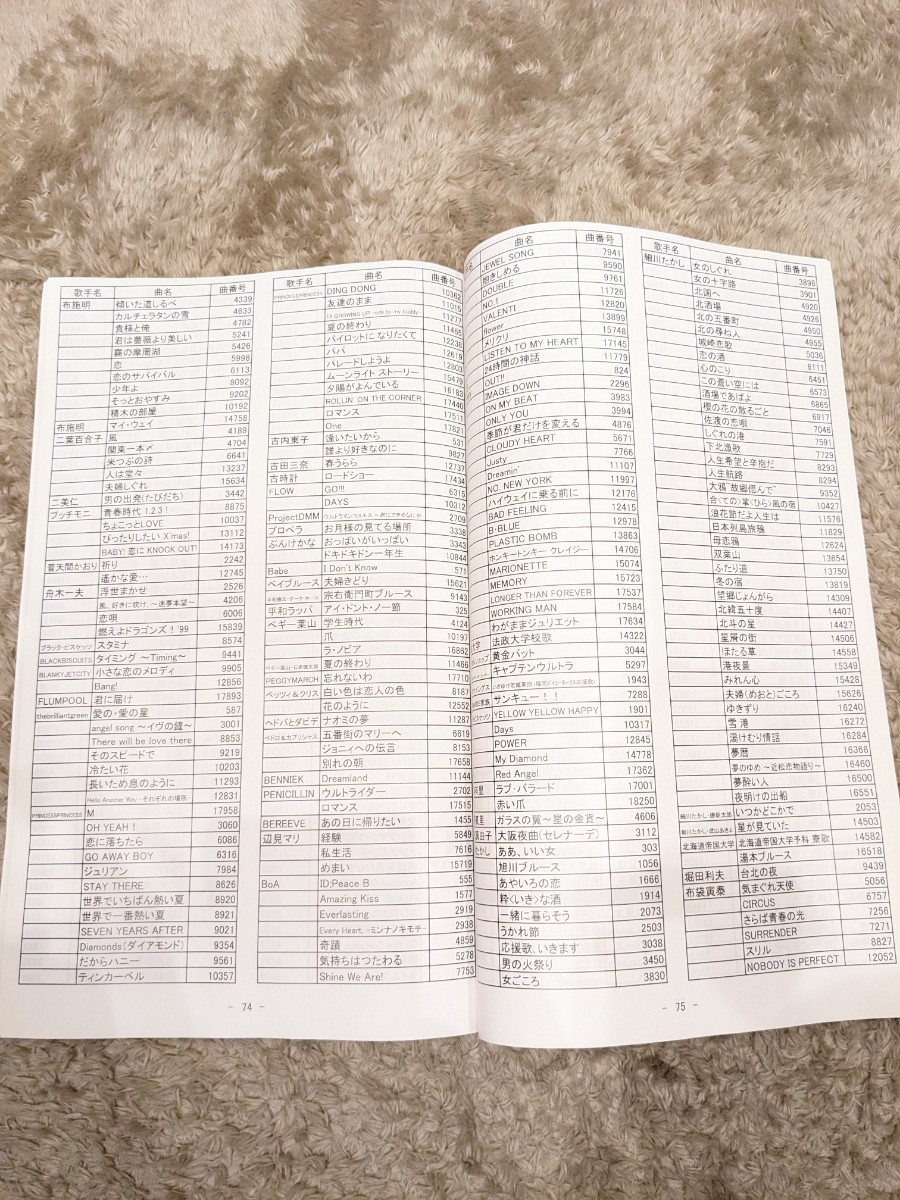 歌手名 曲名 曲番号
布施明 傾いた道しるべ 4339
カルチェラタンの雪 4633
貴様と俺 4782
君は薔薇より美しい 5241
霧の摩周湖 5426
恋 5998
恋のサバイバル 6113
少年よ 8092
そっとおやすみ 9202
積木の部屋 10192
布施明 マイ・ウェイ 14758
二葉百合子 風 4189
関東一本〆 4704
米つぶの詩 6641
人は堂々 13237
夫婦しぐれ 15634
二美仁 男の出発(たびだち) 3442
プッチモニ 青春時代 1.2.3! 8875
ちょこっとLOVE 10037
ぴったりしたい X'mas! 13112
BABY! 恋に KNOCK OUT! 14173
普天間かおり 祈り 2242
遥かな愛… 12745
舟木一夫 浮世まかせ 2526
風、好きに吹け、～迷夢本望～ 4206
恋唄 6006
燃えよドラゴンズ! '99 15839
ブラック・ビスケッツ スタミナ 8574
BLACKBISCUITS タイミング ～Timing～ 9441
BLANKYJETCITY 小さな恋のメロディ 9905
Bang! 12856
FLUMPOOL 君に届け 17893
thebrilliantgreen 愛の・愛の星 587
angel song ～イヴの鐘～ 3001
There will be love there 8853
そのスピードで 9219
冷たい花 10203
長いため息のように 11293
Hello Another Way -それぞれの場所- 12831
PRINCESSPRINCESS M 17958
OH YEAH! 3060
恋に落ちたら 6086
GO AWAY BOY 6316
ジュリアン 7984
STAY THERE 8626
世界でいちばん熱い夏 8920
世界で一番熱い夏 8921
SEVEN YEARS AFTER 9021
Diamonds(ダイアモンド) 9354
だからハニー 9561
ティンカーベル 10357
歌手名 曲名 曲番号
PRINCESSPRINCESS DING DONG 10362
友達のまま 11015
HI GROWING UP ~ode to my buddy~ 11277
夏の終わり 11465
パイロットに なりたくて 12238
パパ 12619
パレードしようよ 12803
ムーンライト ストーリー 15479
夕陽がよんでいる 16183
ROLLIN' ON THE CORNER 17440
ロマンス 17511
One 17821
古内東子 逢いたいから 531
誰より好きなのに 9827
古田三奈 春うらら 12737
古時計 ロードショー 17434
FLOW GO!!! 6315
DAYS 10312
ProjectDMM 2709
プロペラ お月様の見てる場所 3338
ぶんけかな おっぱいがいっぱい 3343
ドキドキドン一年生 10844
Babe I Don't Know 571
ベイブルース 夫婦きどり 15621
宗右衛門町ブルース 9143
平和ラッパ アイ・ドント・ノー節 325
ペギー葉山 学生時代 4124
爪 10197
ラ・ノビア 16862
ペギー葉山・石原慎太郎 夏の終わり 11466
PEGGYMARCH 忘れないわ 17710
ベッツィ&クリス 白い色は恋人の色 8187
花のように 12552
ヘドバとダビデ ナオミの夢 11287
ペドロ&カプリシャス 五番街のマリーへ 6619
ジョニィへの伝言 8153
別れの朝 17658
BENNIEK Dreamland 11144
PENICILLIN ウルトライダー 2702
ロマンス 17515
BEREEVE あの日に帰りたい 1455
辺見マリ 経験 5849
私生活 7616
めまい 15719
BoA ID:Peace B 555
Amazing Kiss 1577
Everlasting 2919
Every Heart. -ミンナノキモチ- 2938
奇蹟 4859
気持ちはつたわる 5278
Shine We Are! 7753
- 74 -
曲名 曲番号
JEWEL SONG 7941
抱きしめる 9590
DOUBLE 9761
NO.1 11726
VALENTI 12820
flower 13899
メリクリ 15748
LISTEN TO MY HEART 17145
24時間の神話 11779
OUT!! 824
IMAGE DOWN 2296
ON MY BEAT 3983
ONLY YOU 3994
季節が君だけを変える 4876
CLOUDY HEART 5671
Justy 7766
Dreamin' 11107
NO. NEW YORK 11997
ハイウェイに乗る前に 12176
BAD FEELING 12415
B・BLUE 12978
PLASTIC BOMB 13863
ホンキートンキー クレイジー 14706
MARIONETTE 15074
MEMORY 15723
LONGER THAN FOREVER 17537
WORKING MAN 17584
わがままジュリエット 17634
法政大学校歌 14322
黄金バット 3044
キャプテンウルトラ 5297
1943
サンキュー!! 7288
YELLOW YELLOW HAPPY 1901
Days 10317
POWER 12845
My Diamond 14778
Red Angel 17362
ラブ・バラード 17001
赤い爪 18250
ガラスの翼～星の金貨～ 4606
大阪夜曲(セレナーデ) 3112
たかし ああ、いい女 303
旭川ブルース 1056
あやいろの恋 1666
粋〈いき〉な酒 1914
一緒に暮らそう 2073
うかれ節 2503
応援歌、いきます 3038
男の火祭り 3450
女ごころ 3830
歌手名 曲名 曲番号
細川たかし 女のしぐれ 3898
女の十字路 3901
北国へ 4920
北酒場 4926
北の五番町 4950
北の尋ね人 4955
城崎恋歌 5036
恋の酒 6111
心のこり 6451
この蒼い空には 6573
酒場であばよ 6865
櫻の花の散るごと 6917
佐渡の恋唄 7048
しぐれの港 7591
下北漁歌 7729
人生希望と辛抱だ 8293
人生航路 8294
大鴉"故郷偲んで" 9352
合〈ての〉掌〈ひら〉風の宿 10427
浪花節だよ人生は 11576
日本列島旅鴉 11829
母恋鴉 12624
双葉山 13654
ふたり道 13750
冬の宿 13819
望郷じょんがら 14309
北緯五十度 14407
北斗の星 14427
星屑の街 14506
ほたる草 14558
港夜景 15349
みれん心 15428
夫婦(めおと)ごころ 15626
ゆきずり 16240
雪港 16272
湯けむり情話 16284
夢暦 16368
夢のゆめ ～近松恋物語り～ 16460
夢酔い人 16500
夜明けの出船 16551
細川たかし・勝新太郎 いつかどこかで 2053
星が見ていた 14503
北海道帝国大学 北海道帝国大学予科 寮歌 14582
湯本ブルース 16518
堀田利夫 台北の夜 9439
布袋寅泰 気まぐれ天使 5056
CIRCUS 6757
さらば青春の光 7256
SURRENDER 7271
スリル 8827
NOBODY IS PERFECT 12052
- 75 -